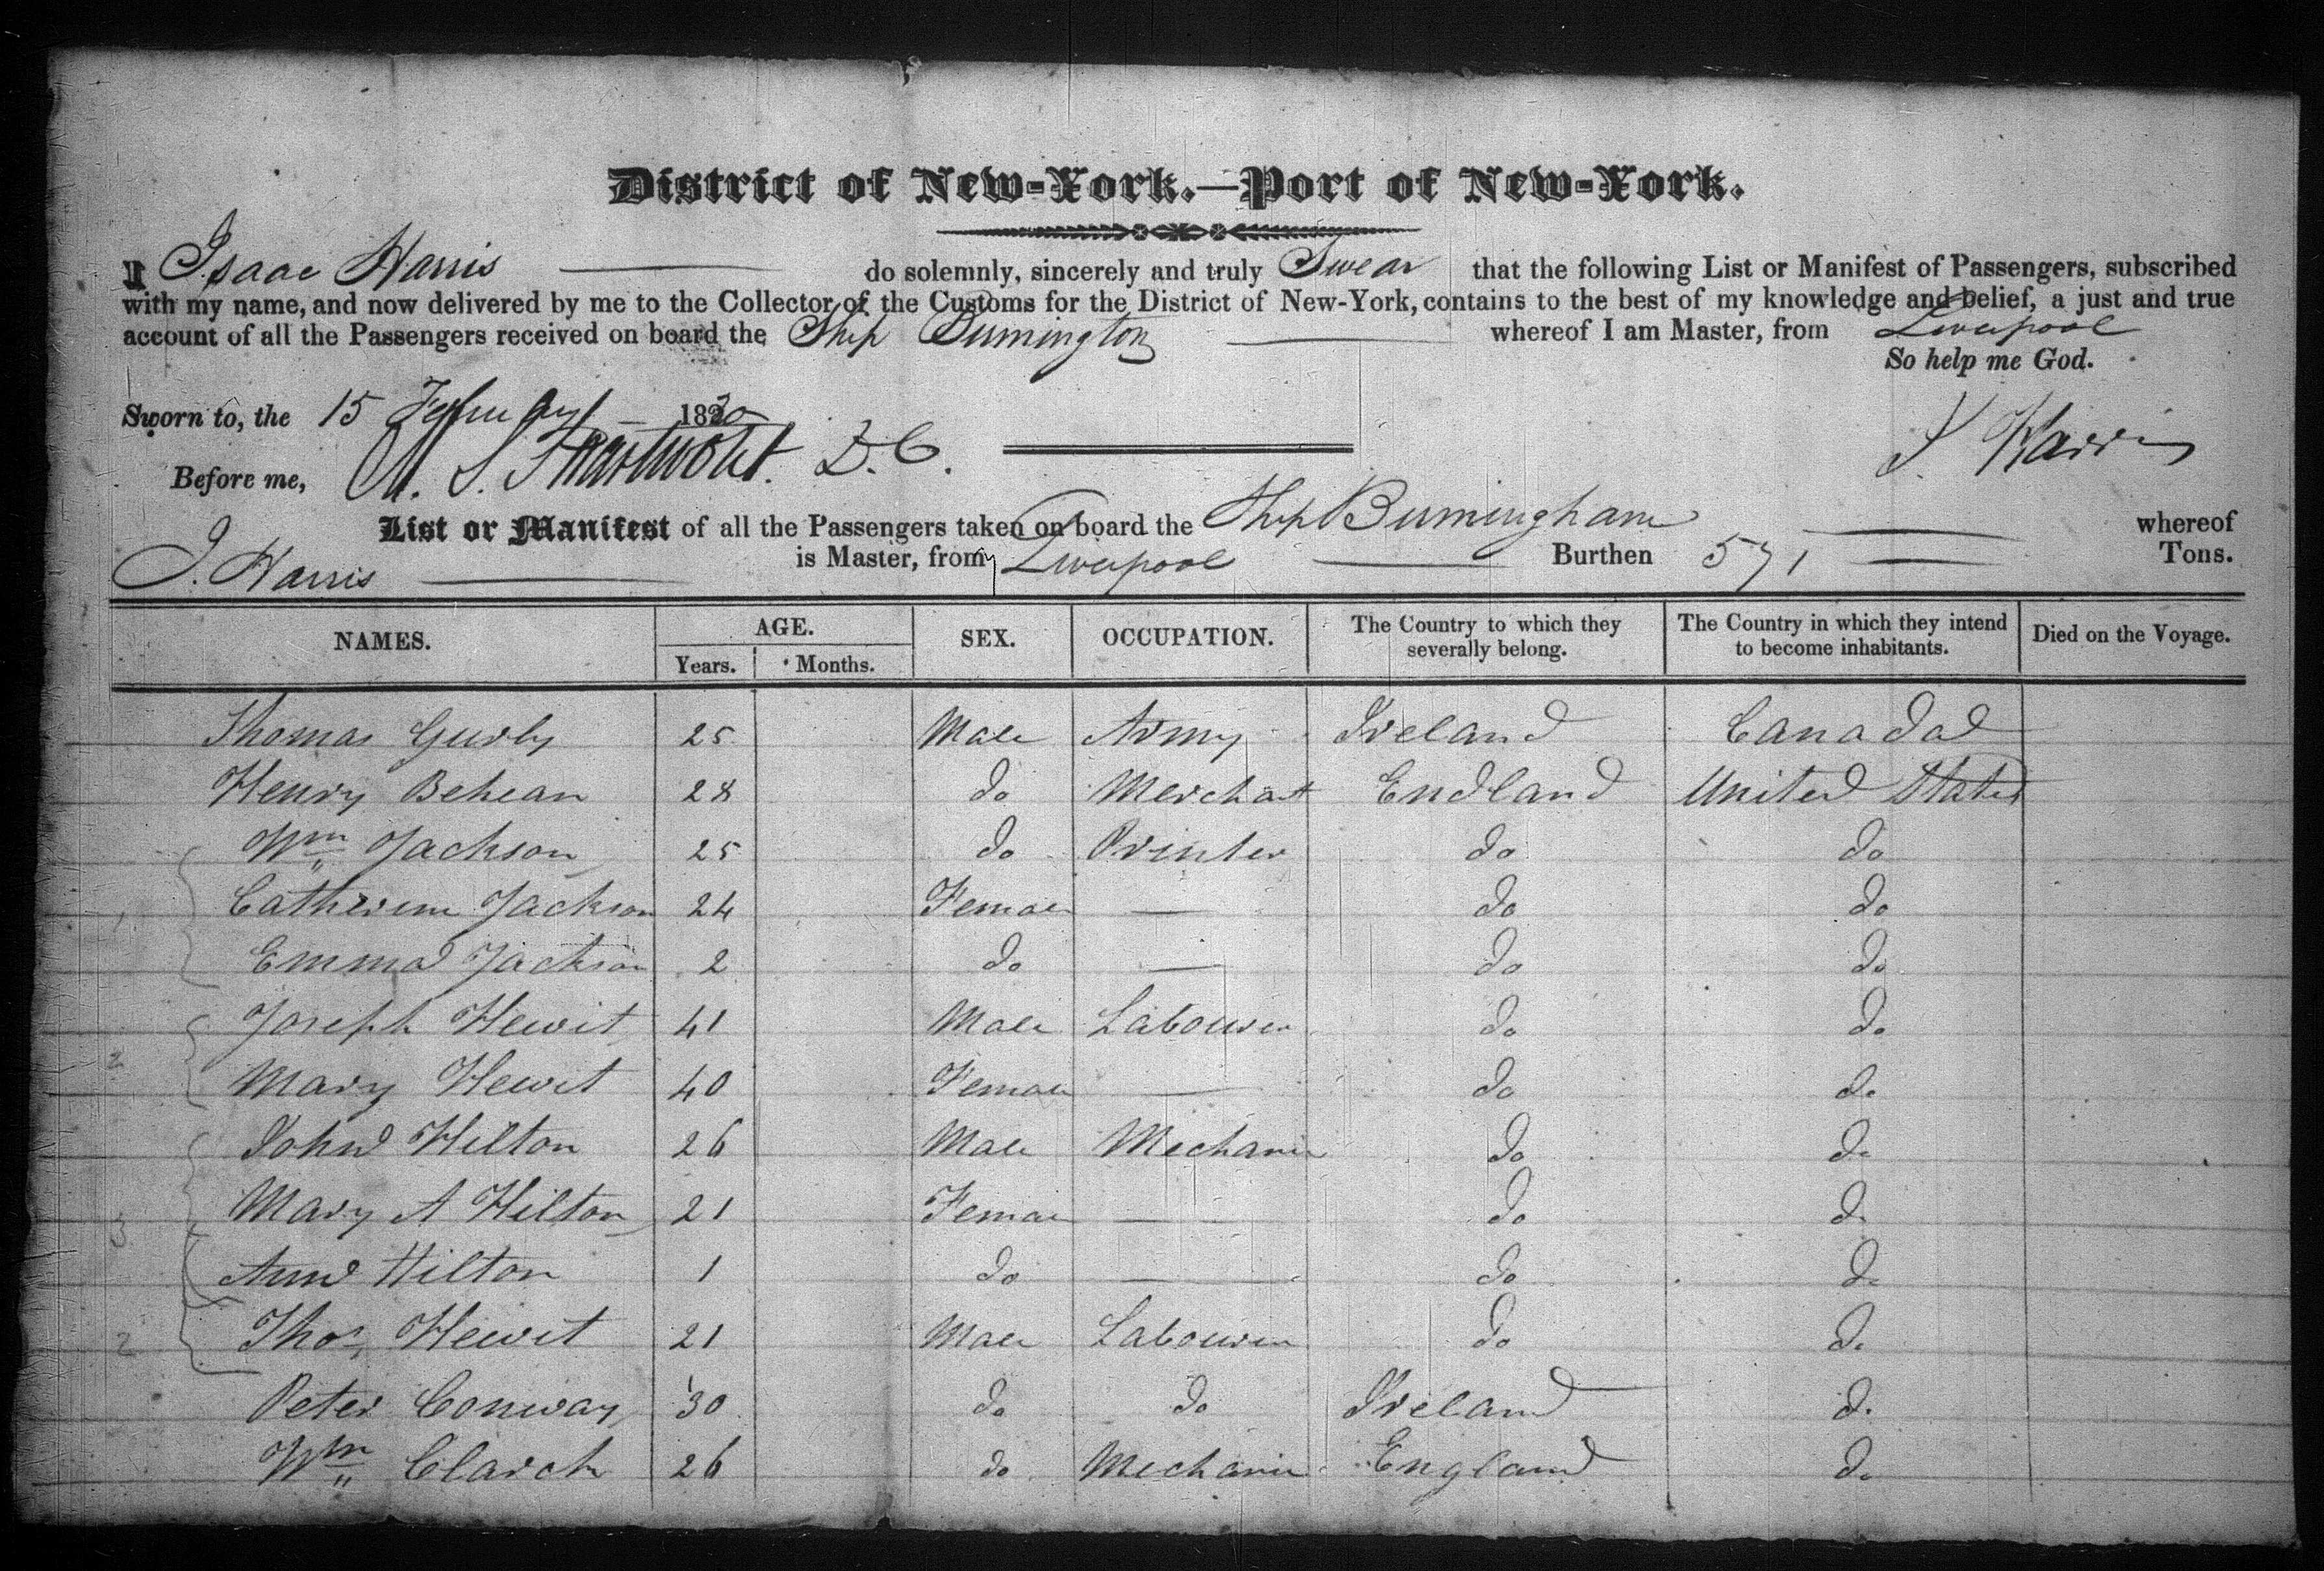 District of New-York.—Port of New-York.
I Isaac Harris do solemnly, sincerely and truly Swear that the following List or Manifest of Passengers, subscribed
with my name, and now delivered by me to the Collector of the Customs for the District of New-York, contains to the best of my knowledge and belief, a just and true
account of all the Passengers received on board the Ship whereof I am Master, from Liverpool
So help me God.
Sworn to, the 15 February 1830
Before me, D.C. I Harris
List or Manifest of all the Passengers taken on board the Ship Burmingham whereof
I. Harris is Master, from Liverpool Burthen 571 Tons.
NAMES. AGE. SEX. OCCUPATION. The Country to which they severally belong. The Country in which they intend to become inhabitants. Died on the Voyage.
Years. Months.
Thomas Gurly 25 Male Army Ireland Canada
Henry Behean 28 do Merchant Endland United States
Wm Jackson 25 do Printer do do
1 Catherine Jackson 24 Female — do do
Emma Jackson 2 do — do do
Joseph Hewit 41 Male Labourer do do
2 Mary Hewit 40 Female — do do
John Hilton 26 Male Mechanic do do
3 Mary A Hilton 21 Female — do do
Ann Hilton 1 do — do do
2 Thos Hewit 21 Male Labourer do do
Peter Conway 30 do do Ireland do
Wm Clarck 26 do Mechanic England do